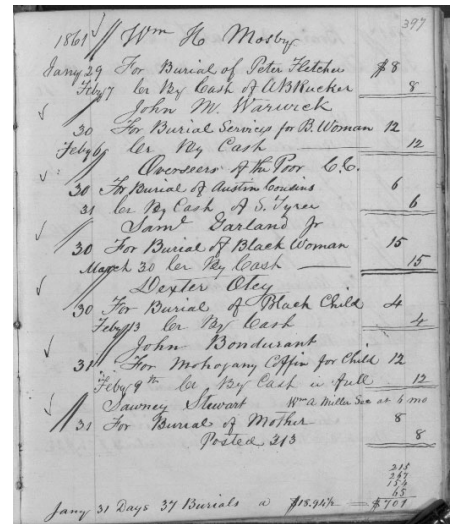 397
1861 Wm H Mosby
Jany 29 For Burial of Peter Fletcher $8
Feby 7 Cr By Cash of A B Rucker 8
John M. Warwick
30 For Burial Services for B. Woman 12
Feby 6 Cr By Cash 12
Overseers of the Poor C.C.
30 For Burial of Austin Cousins 6
31 Cr By Cash of S. Tyree 6
Saml Garland Jr
30 For Burial of Black Woman 15
March 30 Cr By Cash 15
Dexter Otey
30 For Burial of Black Child 4
Feby 13 Cr By Cash 4
John Bondurant
31 For Mohogany Coffin for Child 12
Feby 9th Cr By Cash in full 12
Sawney Stewart Wm A Miller Sec at 6 mo
31 For Burial of Mother 8
Posted 213 8
215
267
154
65
Jany 31 Days 37 Burials a $18.94½ = $701